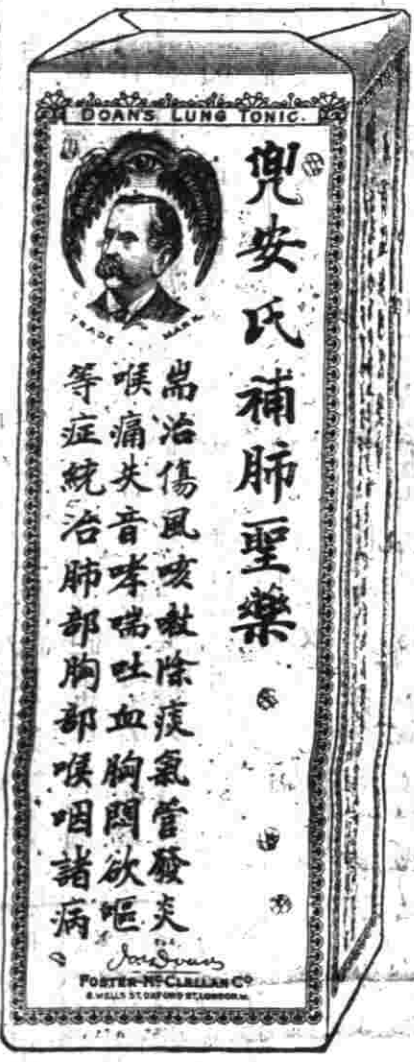 DOAN'S LUNG TONIC.
TRADE MARK
兜安氏補肺聖藥
耑治傷風咳嗽除痰氣管發炎
喉痛失音哮喘吐血胸悶欲嘔
等症統治肺部胸部喉咽諸病
FOSTER-McCLELLAN Co
8, WELLS ST, OXFORD ST, LONDON, W.